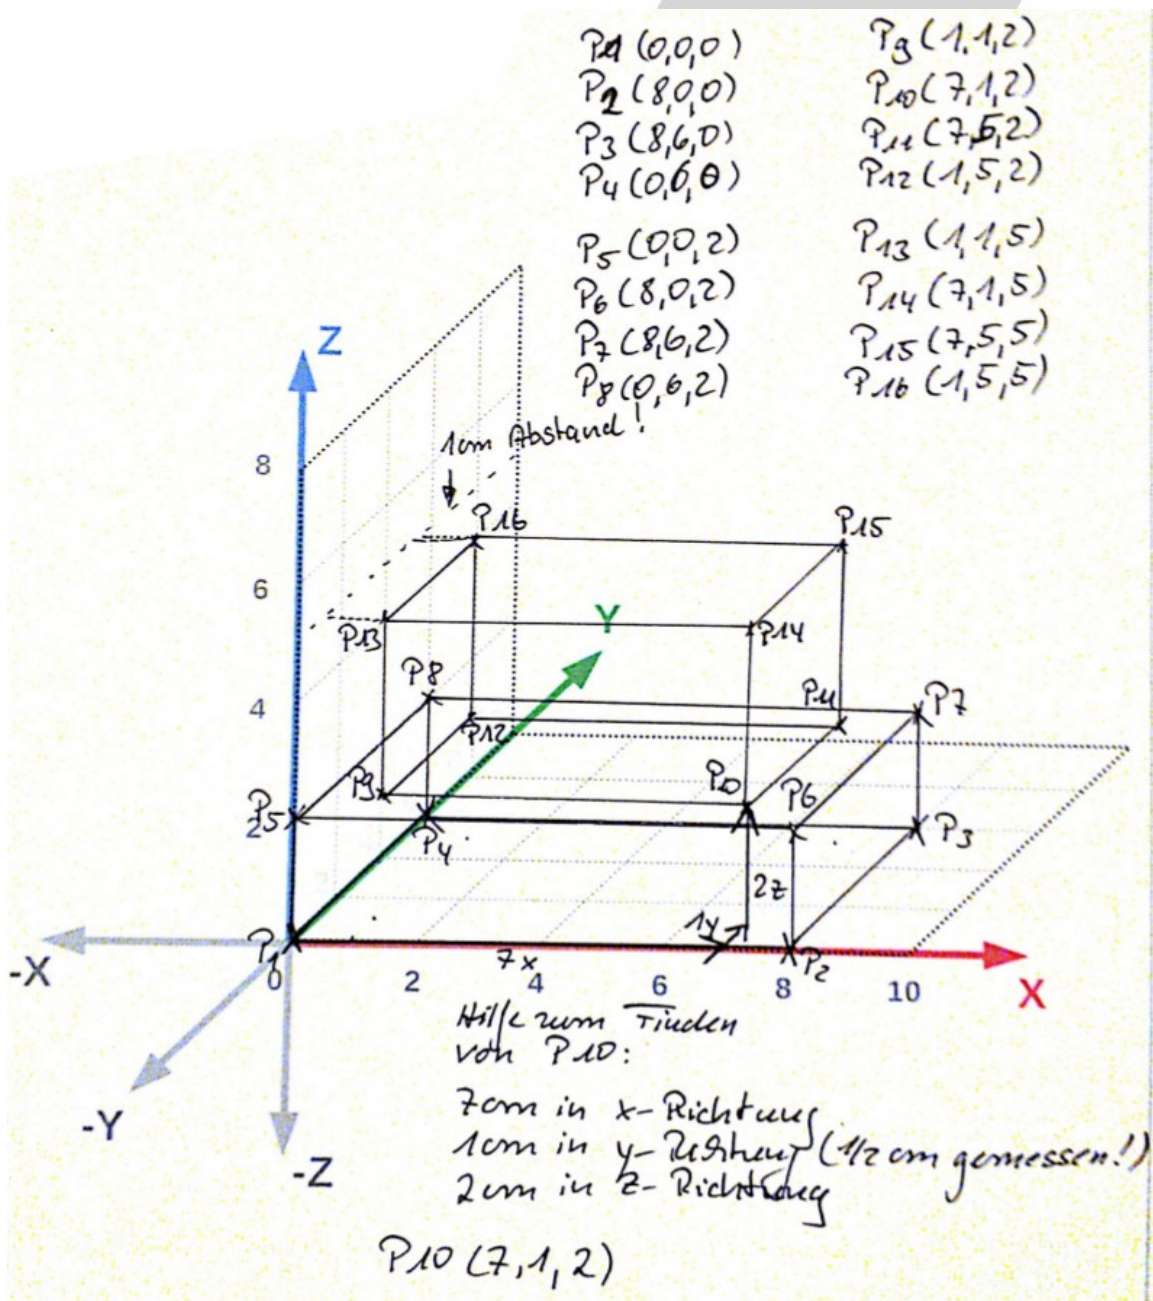 P1 (0,0,0)
P2 (8,0,0)
P3 (8,6,0)
P4 (0,6,0)
P5 (0,0,2)
P6 (8,0,2)
P7 (8,6,2)
P8 (0,6,2)
P9 (1,1,2)
P10 (7,1,2)
P11 (7,5,2)
P12 (1,5,2)
P13 (1,1,5)
P14 (7,1,5)
P15 (7,5,5)
P16 (1,5,5)
Z
1cm Abstand!
8
P16
P15
6
Y
P13
P14
P8
4
P11
P7
P12
P9
P10
P6
P5
2
P4
P3
2z
1y
P1
7x
P2
-X
0
2
4
6
8
10
X
Hilfe zum Finden
von P10:
-Y
7cm in x-Richtung
1cm in y-Richtung (1/2 cm gemessen!)
-Z
2cm in z-Richtung
P10 (7,1,2)